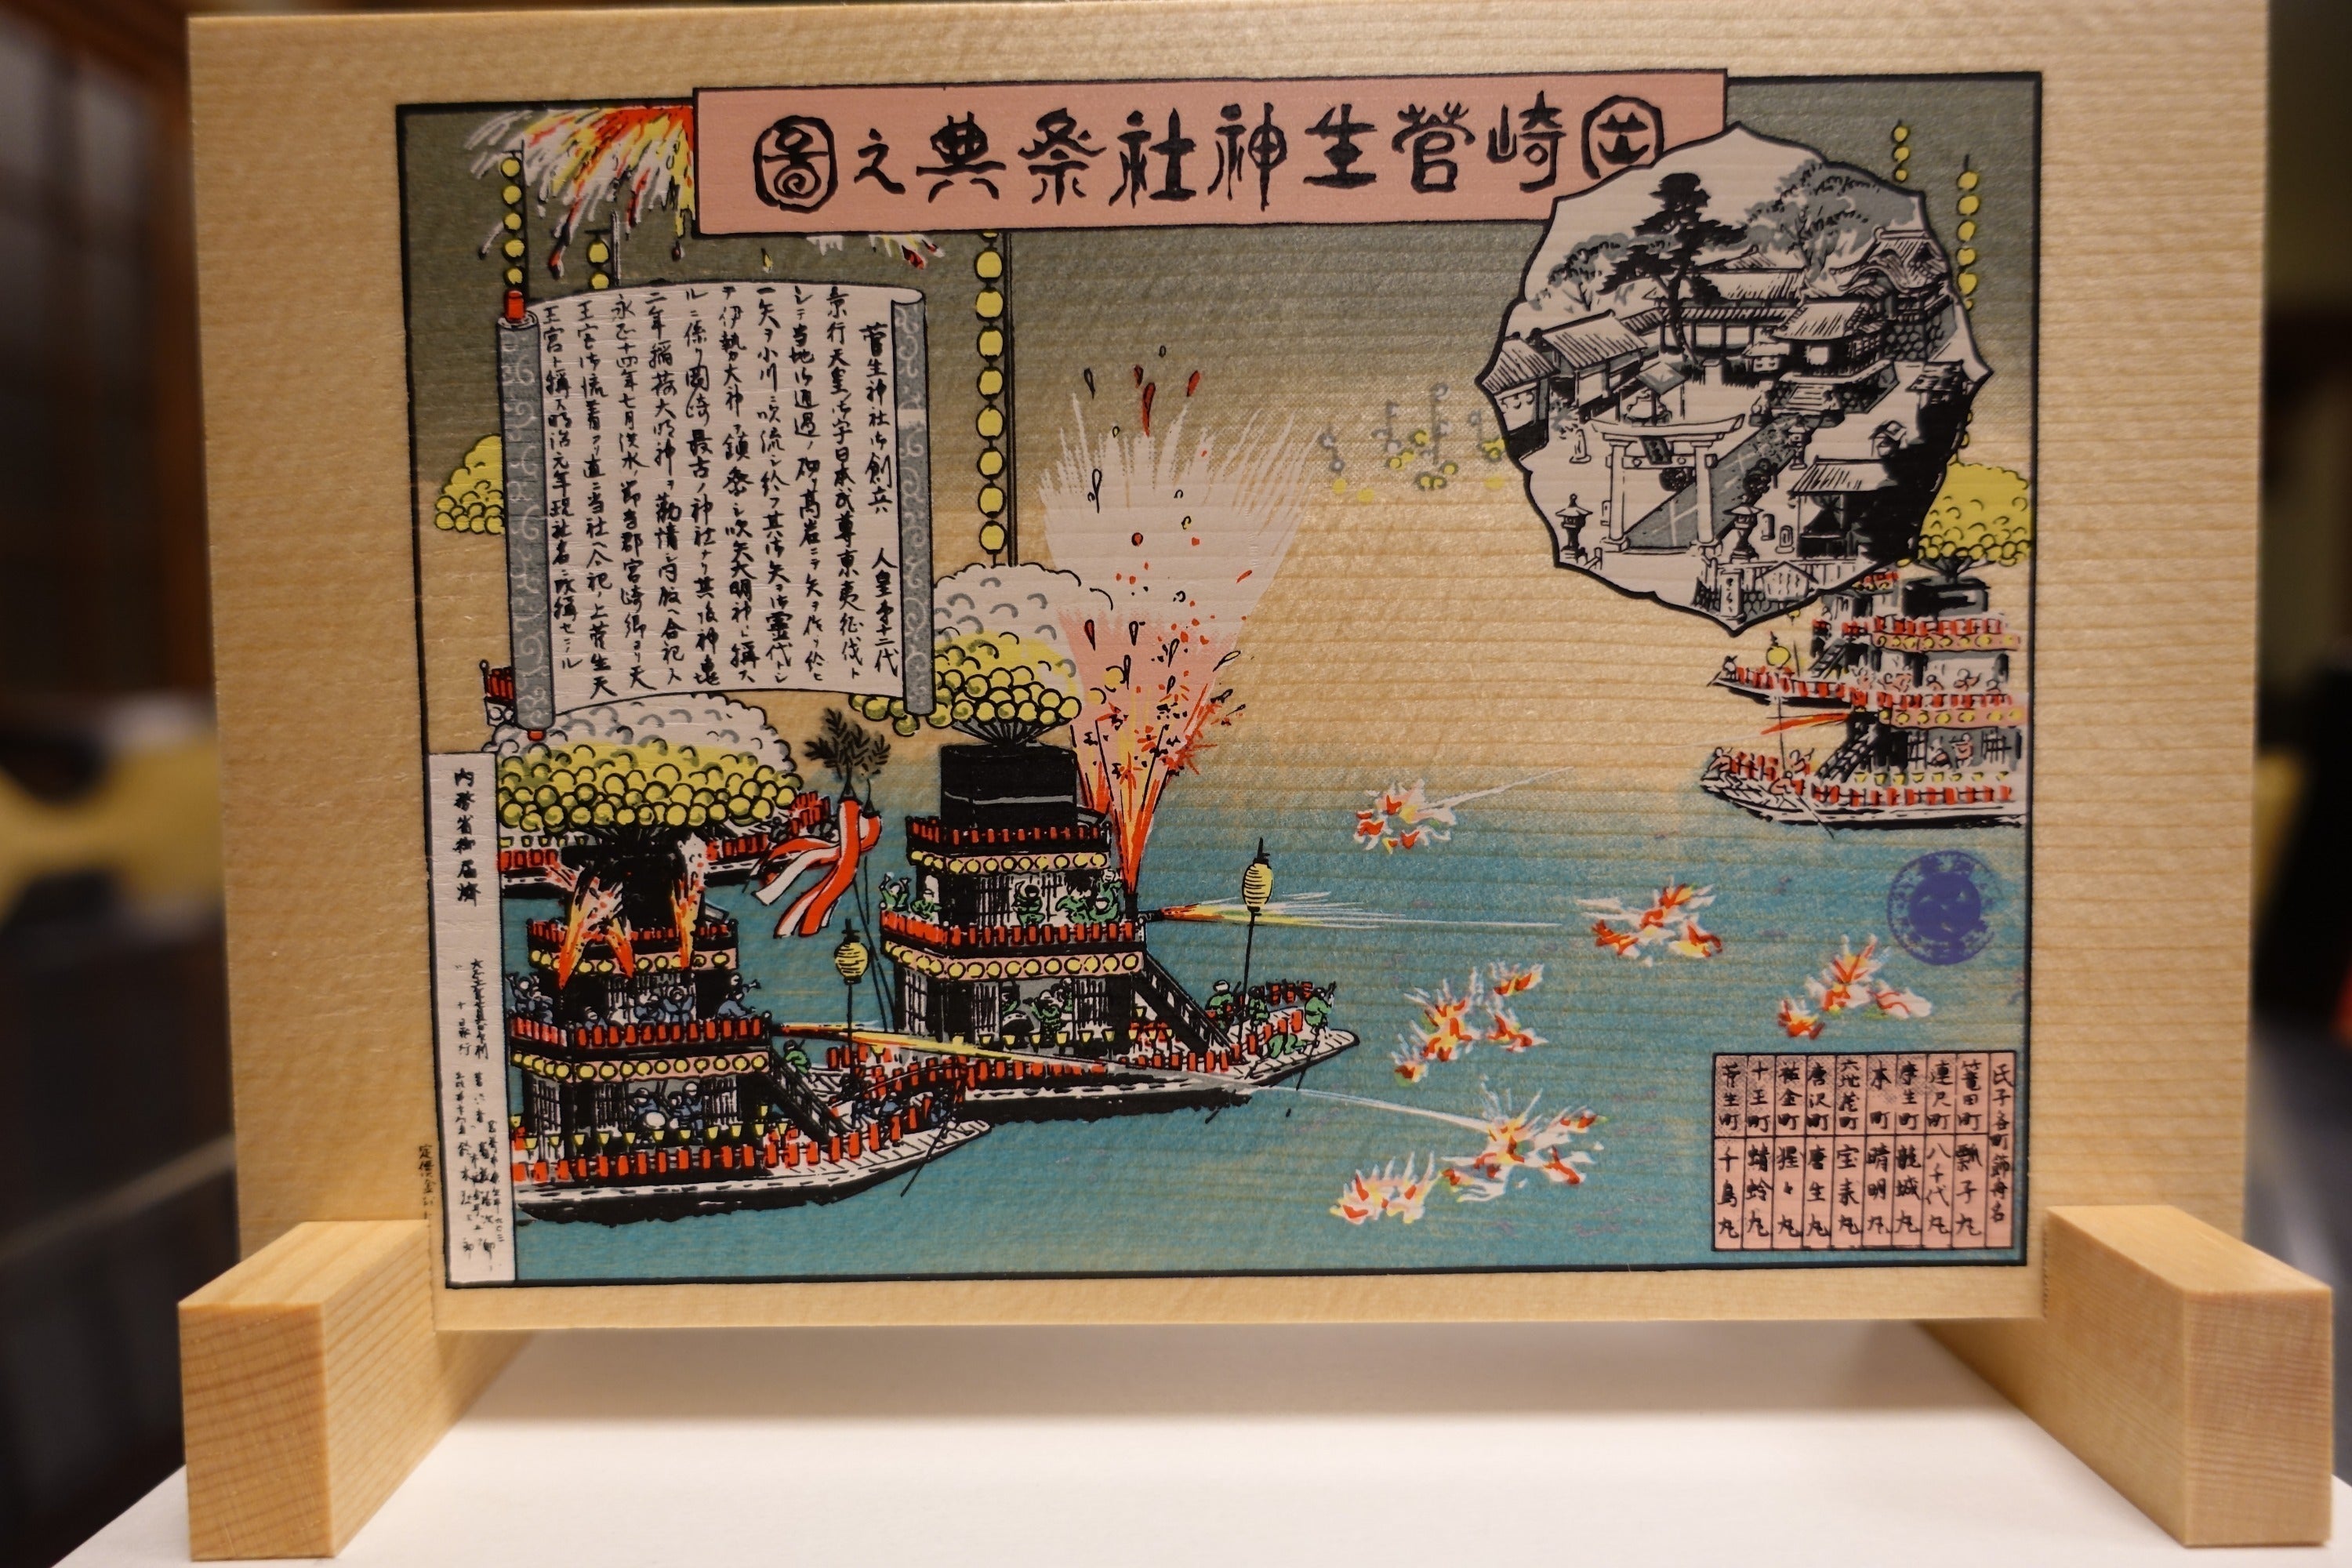 岡崎菅生神社祭典之圖
菅生神社御創立ハ 人皇第十二代
景行天皇御宇日本武尊東夷征伐ト
シテ当地御通過ノ砌リ高岩ニテ矢ヲ作リ給ヒ
一矢ヲ小川ニ吹流シ給フ其御矢ヲ御霊代トシ
テ伊勢大神ヲ鎮祭シ吹矢大明神ト稱ス
ルニ係リ岡崎最古ノ神社ナリ其後神亀
二年稲荷大明神ヲ勧請シ内殿ヘ合祀ス
永正十四年七月洪水ノ節当郡宮崎郷ヨリ天
王宮御流着アリ直ニ当社ヘ合祀ノ上菅生天
王宮ト稱ス明治元年現社名ニ改稱セラル
氏子各町鉾舟名
篭田町 瓢子丸
連尺町 八千代丸
康生町 龍城丸
本町 晴明丸
六地蔵町 宝来丸
唐沢町 唐生丸
祐金町 猩々丸
十王町 蜻蛉丸
菅生町 千鳥丸
内務省御届濟